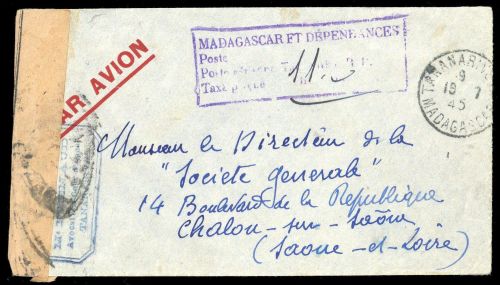 MADAGASCAR ET DÉPENDANCES
Poste
Poste aérienne
Taxe perçue 11.
PAR AVION
TANANARIVE
9
19 7
45
MADAGASCAR
Monsieur le Directeur de la
"Societe generale"
14 Boulevard de la Republique
Chalon-sur-Saône
(Saone-et-Loire)